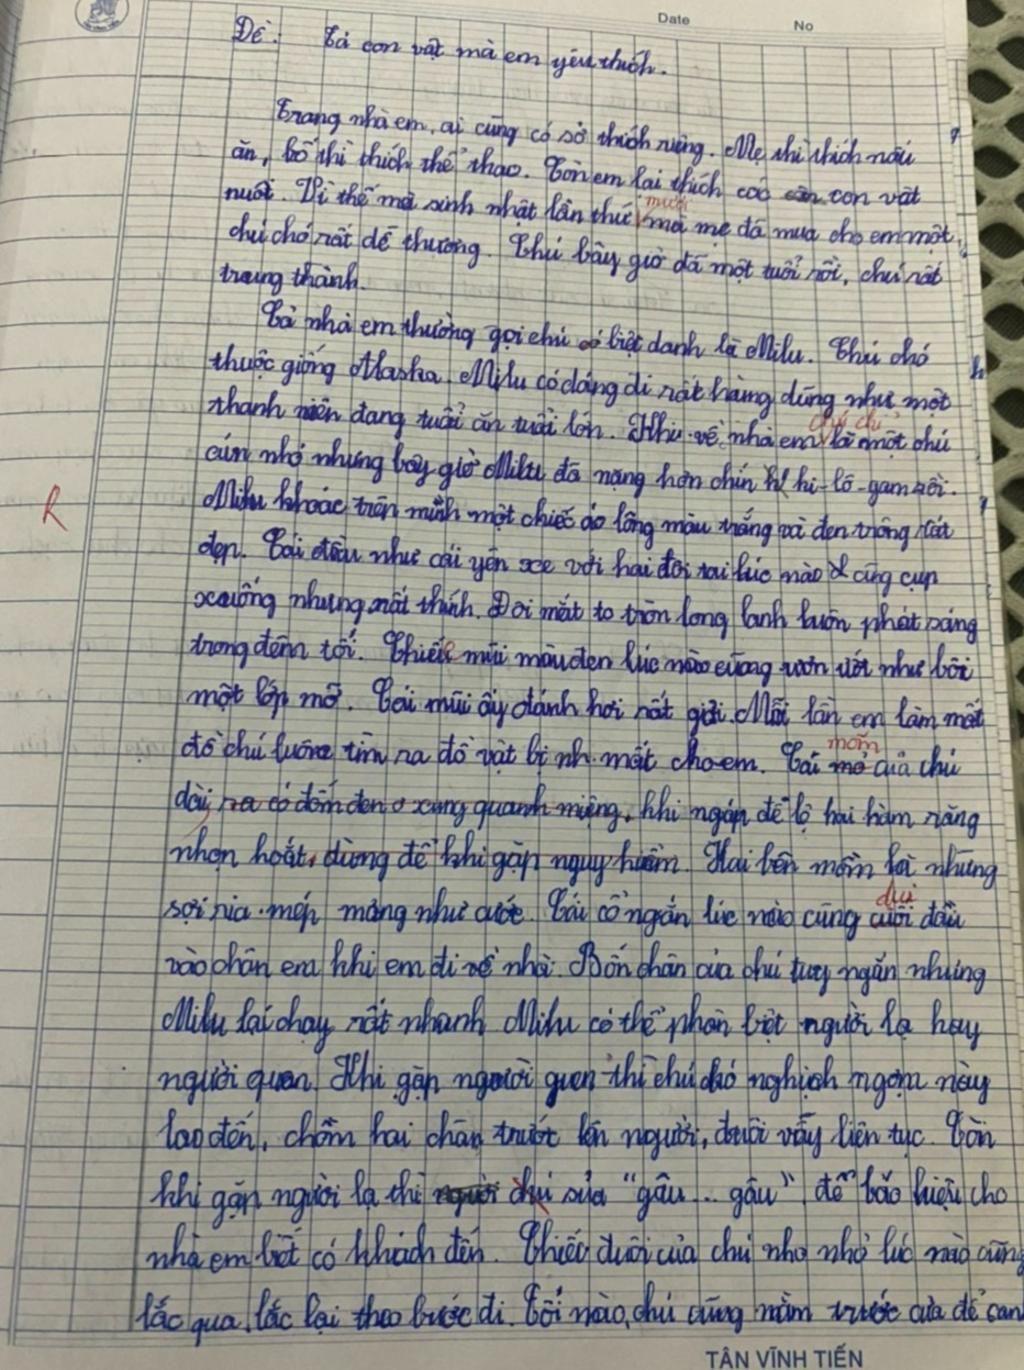 Date No
Đề: Tả con vật mà em yêu thích.
Trong nhà em, ai cũng có sở thích riêng. Mẹ thì thích nấu
ăn, bố thì thích thể thao. Còn em lại thích các con vật
nuôi. Vì thế mà sinh nhật lần thứ mười mà mẹ đã mua cho em một
chú chó rất dễ thương. Chú bây giờ đã một tuổi rồi, chú rất
trung thành.
Cả nhà em thường gọi chú có biệt danh là Milu. Chú chó
thuộc giống Alasha. Milu có dáng đi rất hùng dũng như một
thanh niên đang tuổi ăn tuổi lớn. Khi về nhà em chú chỉ là một chú
cún nhỏ nhưng bây giờ Milu đã nặng hơn chín ki-lô-gam rồi.
R
Milu khoác trên mình một chiếc áo lông màu trắng và đen trông rất
đẹp. Cái đầu như cái yên xe với hai đôi tai lúc nào cũng cụp
xuống nhưng rất thính. Đôi mắt to tròn long lanh luôn phát sáng
trong đêm tối. Chiếc mũi màu đen lúc nào cũng ươn ướt như bôi
một lớp mỡ. Cái mũi ấy đánh hơi rất giỏi. Mỗi lần em làm mất
đồ chú luôn tìm ra đồ vật bị mất cho em. Cái mõm của chú
dài có đốm đen ở xung quanh miệng, khi ngáp để lộ hai hàm răng
nhọn hoắt, dùng để khi gặp nguy hiểm. Hai bên mồm là những
sợi ria mép mỏng như cước. Cái cổ ngắn lúc nào cũng dụi đầu
vào chân em khi em đi về nhà. Bốn chân của chú tuy ngắn nhưng
Milu lại chạy rất nhanh. Milu có thể phân biệt người lạ hay
người quen. Khi gặp người quen thì chú chó nghịch ngợm này
lao đến, chồm hai chân trước lên người, đuôi vẫy liên tục. Còn
khi gặp người lạ thì chú sủa "gâu... gâu" để báo hiệu cho
nhà em biết có khách đến. Chiếc đuôi của chú nho nhỏ lúc nào cũng
lắc qua, lắc lại theo bước đi. Tối nào, chú cũng nằm trước cửa để canh
TÂN VĨNH TIẾN